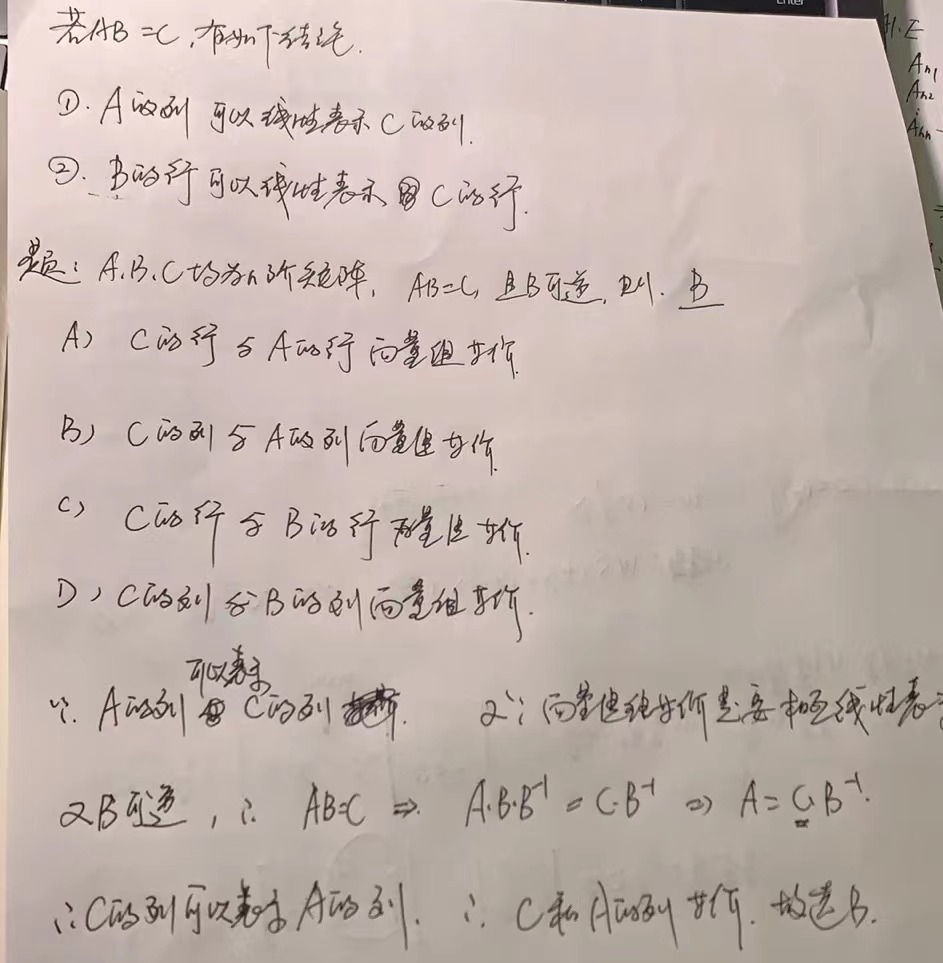 若AB=C,有如下结论.
①. A的列 可以线性表示 C的列.
②. B的行 可以线性表示 C的行.
题: A.B.C均为n阶矩阵, AB=C, 且B可逆, 则. B
A) C的行与A的行向量组等价.
B) C的列与A的列向量组等价.
C) C的行与B的行向量组等价.
D) C的列与B的列向量组等价.
∵ A的列可以表示C的列. 又∵向量组等价是要相互线性表示
又B可逆, ∴ AB=C ⇒ A·B·B⁻¹ = C·B⁻¹ ⇒ A=C·B⁻¹.
∴C的列可以表示A的列. ∴ C和A的列等价. 故选B.
H.E
An1
An2
Ann
Enter